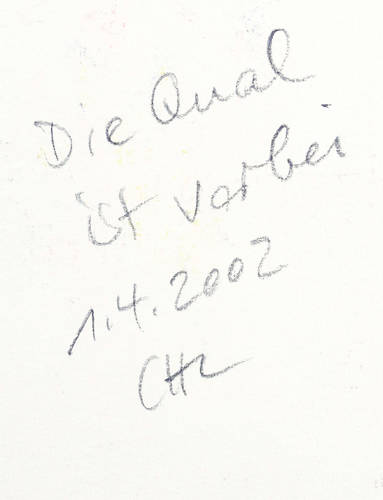 Die Qual
ist vorbei
1.4.2002
CHL